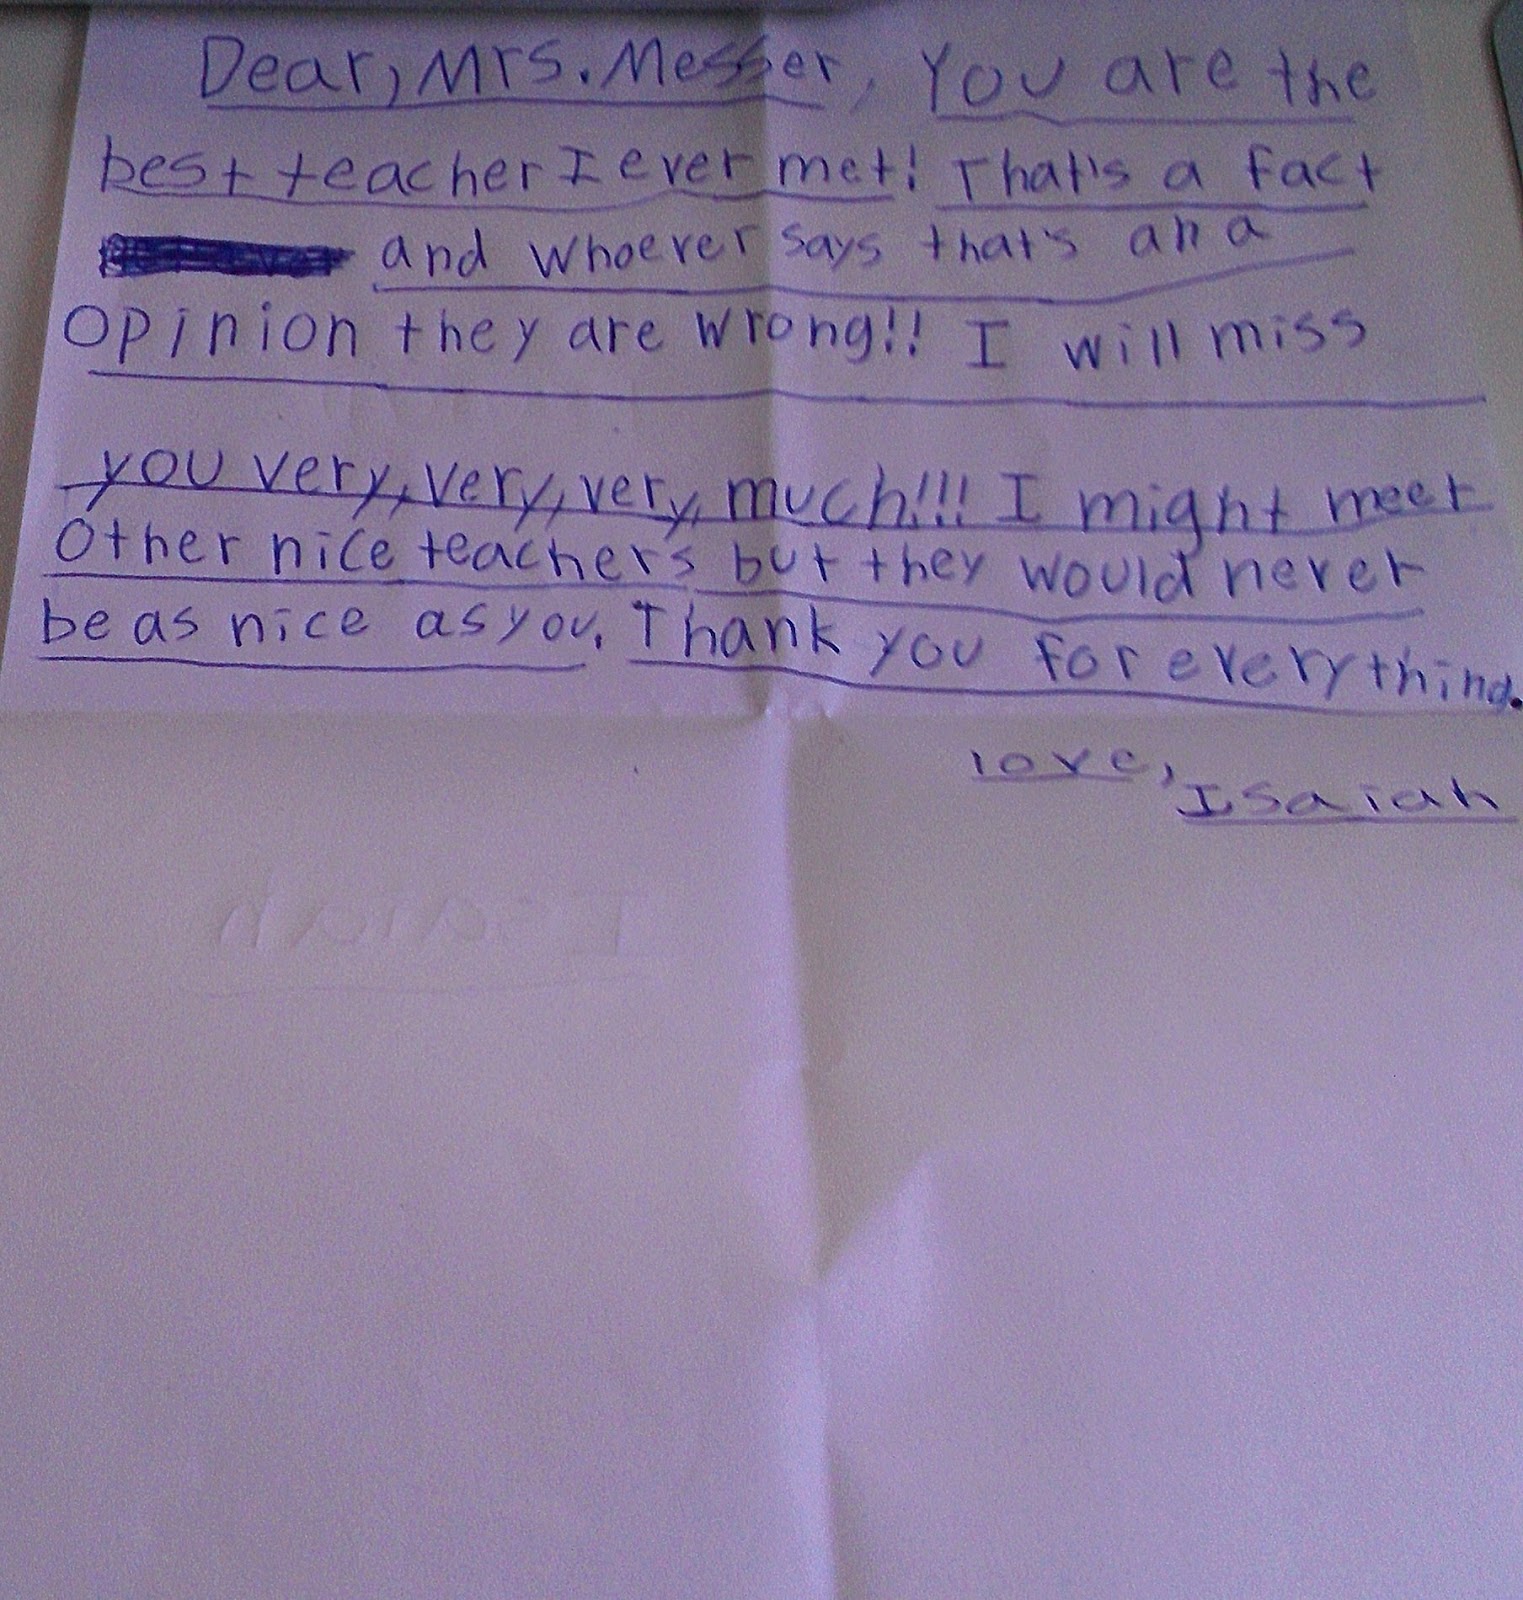 Dear, Mrs. Messer, You are the
best teacher I ever met! That's a fact
and whoever says that's an a
opinion they are wrong!! I will miss
you very, very, very, much!!! I might meet
other nice teachers but they would never
be as nice as you. Thank you for everything.
love,
Isaiah
Isaiah